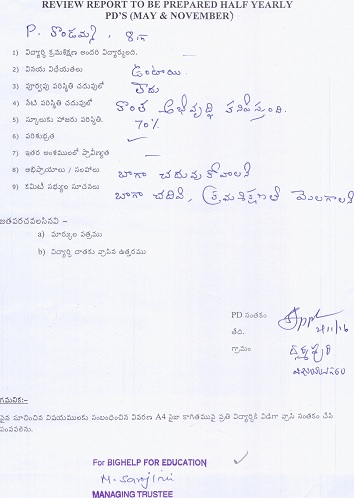 REVIEW REPORT TO BE PREPARED HALF YEARLY
PD'S (MAY & NOVEMBER)
P. కొండమ్మ, 8వ
1) విద్యార్థి క్రమశిక్షణ అందరి విద్యార్థులది.
2) వినయ విధేయతలు ఉంటాయి.
3) పూర్వపు పరిస్థితి చదువులో లేదు
4) నేటి పరిస్థితి చదువులో కొంత అభివృద్ధి కనిపిస్తుంది.
5) స్కూలుకు హాజరు పరిస్థితి. 70%
6) పరిశుభ్రత
7) ఇతర అంశములలో ప్రావీణ్యత
8) అభిప్రాయాలు / సలహాలు బాగా చదువుకోవాలి
9) కమిటీ సభ్యుల సూచనలు బాగా చదివి, క్రమశిక్షణతో మెలగాలి
జతపరచవలసినవి –
a) మార్కుల పత్రము
b) విద్యార్థి దాతకు వ్రాసిన ఉత్తరము
PD సంతకం
తేది. 2/11/16
గ్రామం
గమనిక:-
పైన సూచించిన విషయములకు సంబంధించిన వివరణ A4 సైజు కాగితముపై ప్రతి విద్యార్థికి విడిగా వ్రాసి సంతకం చేసి
పంపవలెను.
For BIGHELP FOR EDUCATION
M. Sarojini
MANAGING TRUSTEE